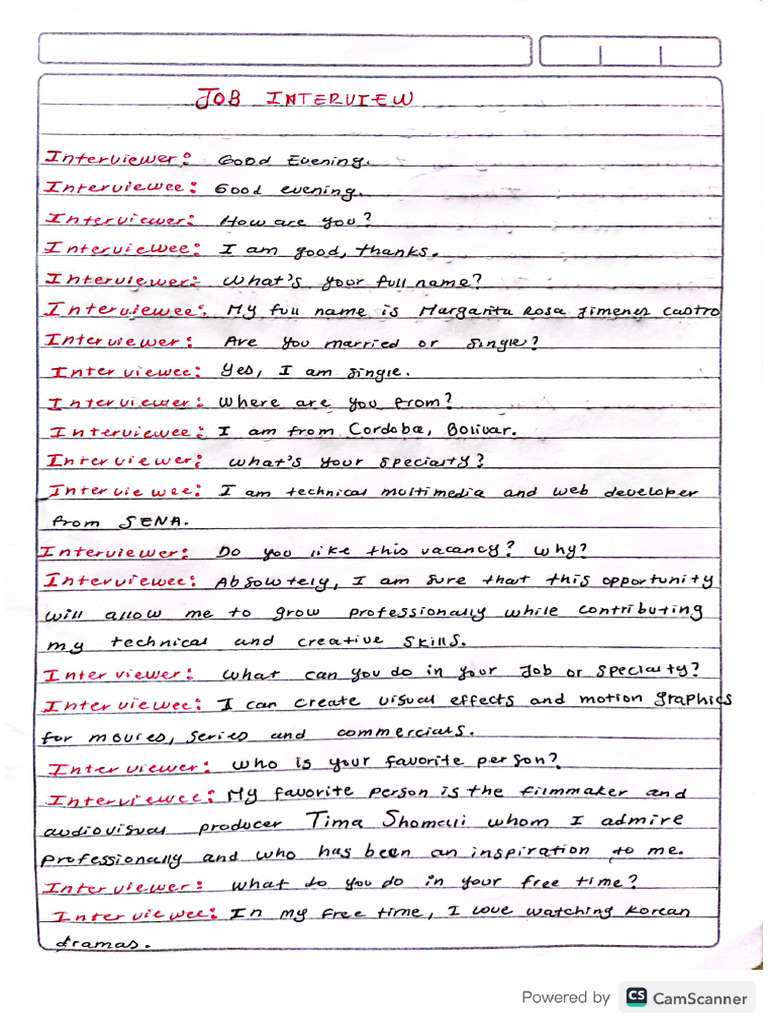 JOB INTERVIEW
Interviewer: Good Evening.
Interviewee: Good evening.
Interviewer: How are you?
Interviewee: I am good, thanks.
Interviewer: What's your full name?
Interviewee: My full name is Margarita Rosa Jimenez Castro
Interviewer: Are you married or single?
Interviewee: Yes, I am single.
Interviewer: Where are you from?
Interviewee: I am from Cordoba, Bolivar.
Interviewer: What's your specialty?
Interviewee: I am technical multimedia and web developer
from SENA.
Interviewer: Do you like this vacancy? Why?
Interviewee: Absolutely, I am sure that this opportunity
will allow me to grow professionally while contributing
my technical and creative skills.
Interviewer: What can you do in your Job or specialty?
Interviewee: I can create visual effects and motion graphics
for movies, series and commercials.
Interviewer: Who is your favorite person?
Interviewee: My favorite person is the filmmaker and
audiovisual producer Tima Shomali whom I admire
professionally and who has been an inspiration to me.
Interviewer: What do you do in your free time?
Interviewee: In my free time, I love watching Korean
dramas.
Powered by CS CamScanner